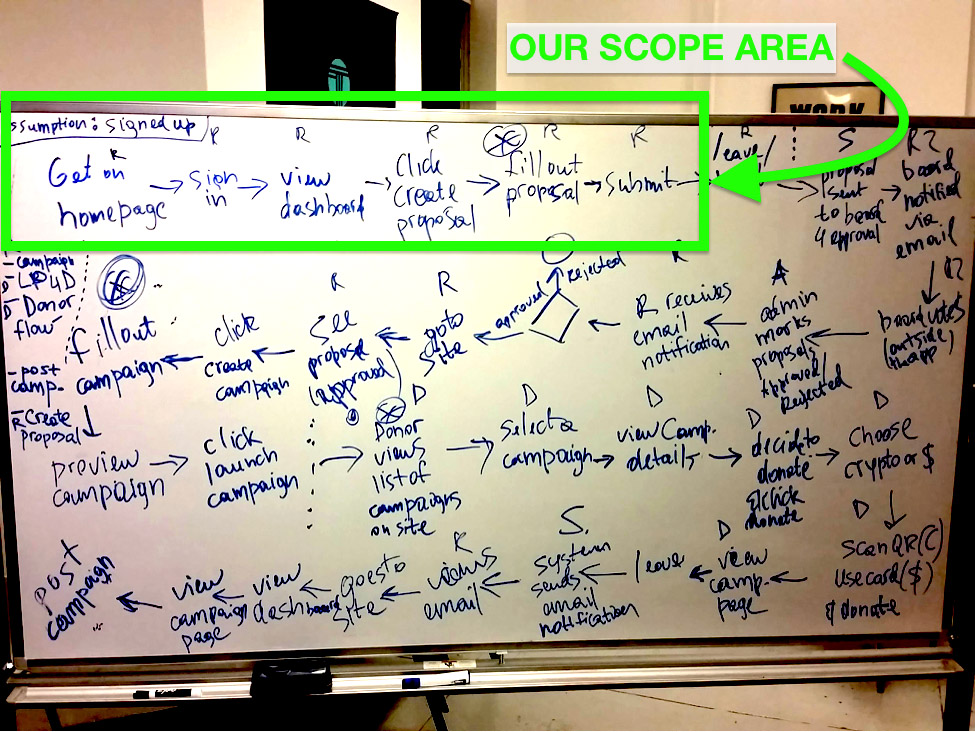 OUR SCOPE AREA
WORK
ssumption: signed up
R
Get on
homepage
R
sign
in
R
view
dashboard
R
Click
create
proposal
R
fill out
proposal
R
submit
R
leave
S
proposal
sent
to board
4 approval
R?
board
notified
via
email
R
board votes
(outside
the app)
A
admin
marks
proposals
approved/
Rejected
R
R receives
email
notification
approved
Rejected
R
go to
site
R
See
proposal
(approved)
click
create
campaign
fillout
campaign
- campaign
D - LP4D
D - Donor
flow
- post
camp.
- Create
R proposal
preview
campaign
click
launch
campaign
D
Donor
views
list of
campaigns
on site
D
Select a
campaign
D
view Camp.
details
D
decide to
donate
& click
donate
D
Choose
crypto or $
D
scan QR (C)
use card ($)
& donate
D
view
camp.
page
leave
S.
system
sends
email
notification
R
views
email
goes to
site
view
dashboard
view
campaign
page
post
campaign